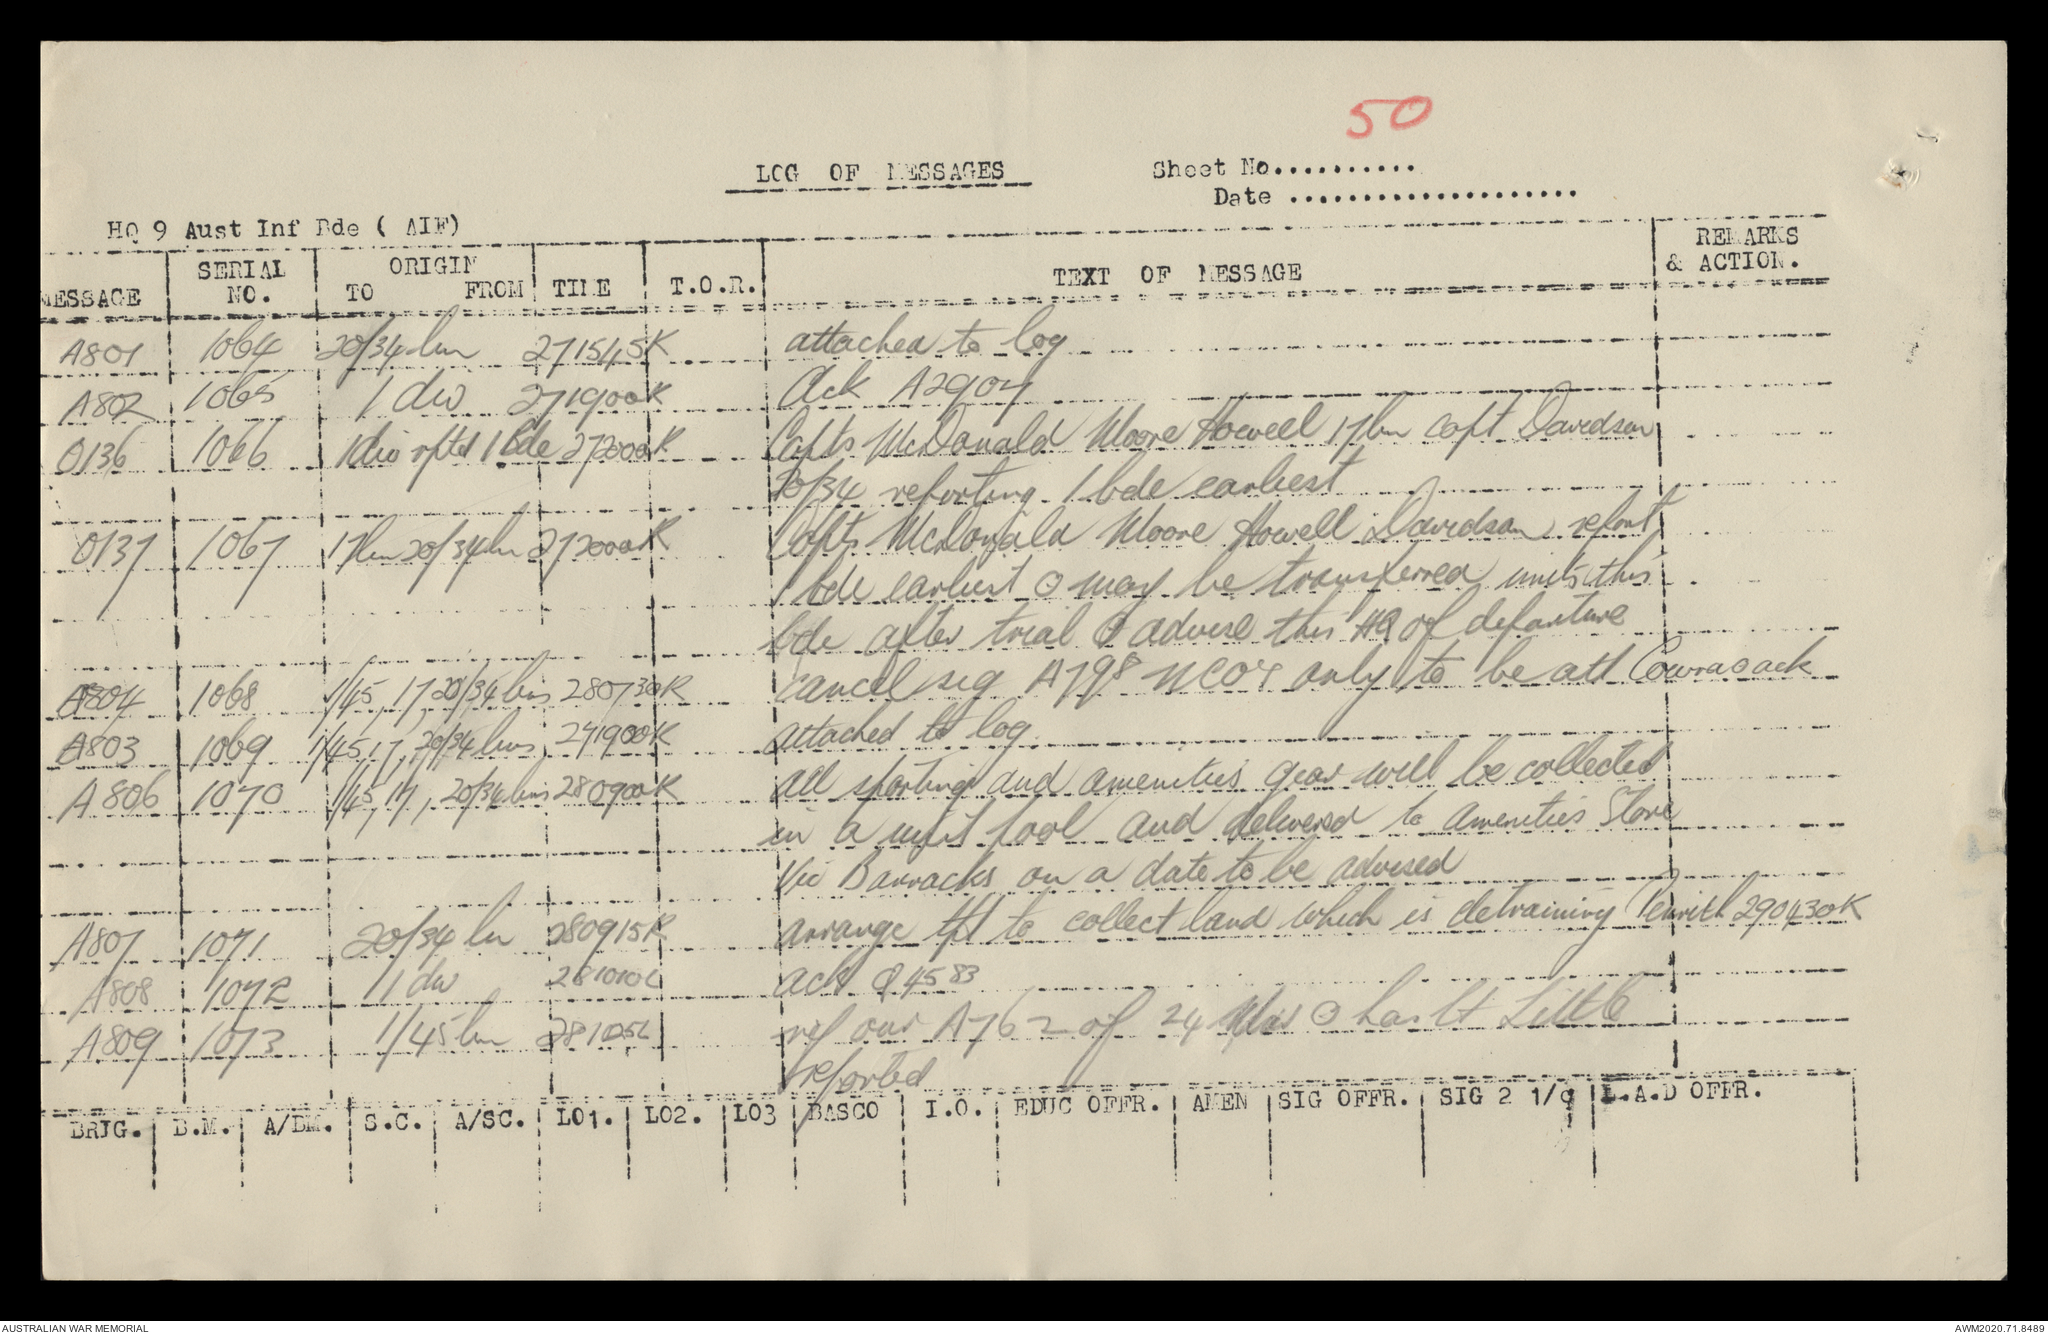 50
LOG OF MESSAGES
Sheet No...........
Date ....................
HQ 9 Aust Inf Bde ( AIF)
MESSAGE SERIAL NO. ORIGIN TO FROM TIME T.O.R. TEXT OF MESSAGE REMARKS & ACTION.
A801 1064 20/34 bn 271545K attached to log
A802 1065 1 div 271900K Ack A2904
O136 1066 1 div rptd 1 Bde 272000K Capts McDonald Moore Howell 17 bn capt Davidson
20/34 reporting 1 bde earliest
O137 1067 17 bn 20/34 bn 272000K Capts McDonald Moore Howell Davidson report
1 bde earliest ⊙ may be transferred units this
bde after trial ⊙ advise this HQ of departure
A804 1068 1/45, 17, 20/34 bns 280730K cancel sig A798 NCOs only to be att Cowra ⊙ ack
A803 1069 1/45, 17, 20/34 bns 271900K attached to log
A806 1070 1/45, 17, 20/34 bns 280900K all sporting and amenities gear will be collected
in a unit pool and delivered to Amenities Store
Vic Barracks on a date to be advised
A807 1071 20/34 bn 280915K arrange tpt to collect band which is detraining Penrith 290430K
A808 1072 1 div 281010L ack Q4583
A809 1073 1/45 bn 281025L ref our A762 of 24 Mar ⊙ has Lt Little
reported
BRIG. B.M. A/BM. S.C. A/SC. LO1. LO2. LO3 BASCO I.O. EDUC OFFR. AMEN SIG OFFR. SIG 2 1/c L.A.D OFFR.
AUSTRALIAN WAR MEMORIAL
AWM2020.71.8489